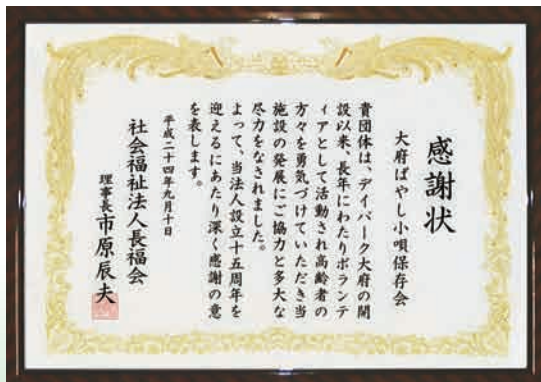 感謝状
大府ばやし小唄保存会
貴団体は、デイパーク大府の開
設以来、長年にわたりボランテ
ィアとして活動され高齢者の
方々を勇気づけていただき当
施設の発展にご協力と多大な
尽力をなされました。
よって、当法人設立十五周年を
迎えるにあたり深く感謝の意
を表します。
平成二十四年九月十日
社会福祉法人長福会
理事長市原辰夫